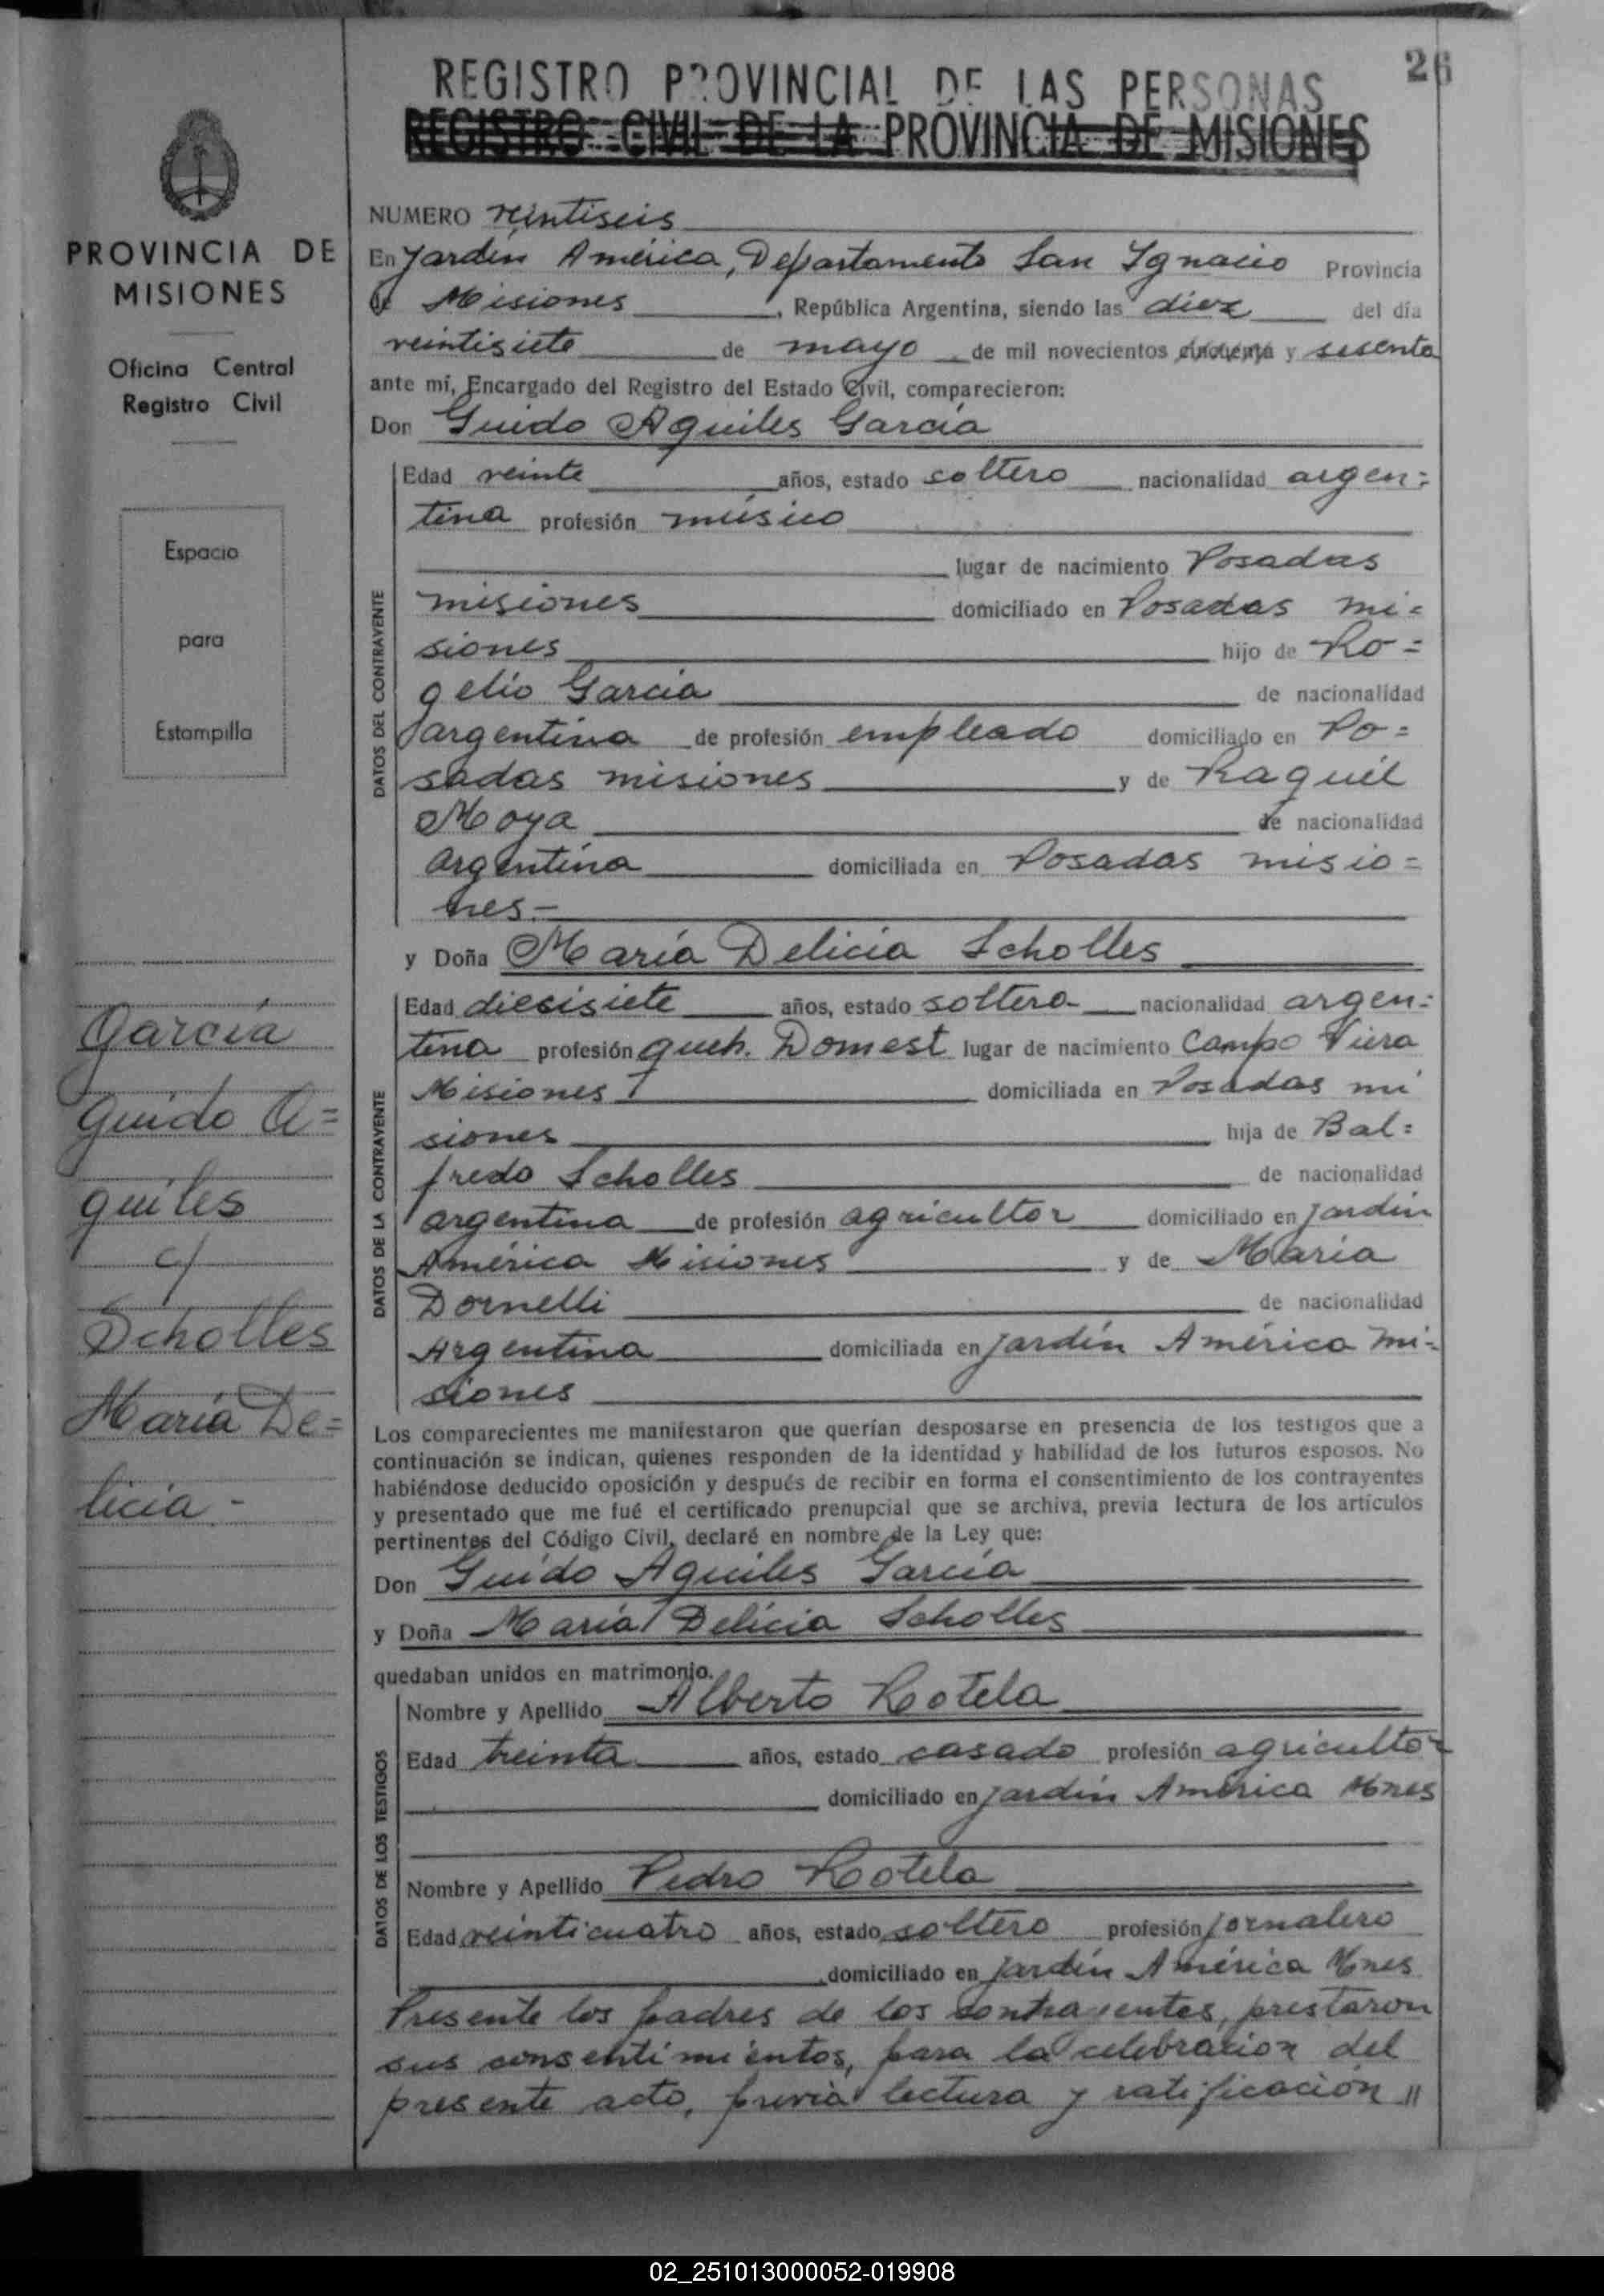 26
REGISTRO PROVINCIAL DE LAS PERSONAS
REGISTRO CIVIL DE LA PROVINCIA DE MISIONES
PROVINCIA DE
MISIONES
Oficina Central
Registro Civil
Espacio
para
Estampilla
García
Guido A=
quiles
c/
Scholles
María De=
licia -
NUMERO veintiseis
En Jardín América, Departamento San Ignacio Provincia
de Misiones, República Argentina, siendo las diez del día
veintisiete de mayo de mil novecientos cincuenta y sesenta
ante mí, Encargado del Registro del Estado Civil, comparecieron:
Don Guido Aquiles García
DATOS DEL CONTRAYENTE
Edad veinte años, estado soltero nacionalidad argen=
tina profesión músico
lugar de nacimiento Posadas
misiones domiciliado en Posadas mi=
siones hijo de Ro=
gelio García de nacionalidad
argentina de profesión empleado domiciliado en Po=
sadas misiones y de Raquel
Moya de nacionalidad
argentina domiciliada en Posadas misio=
nes-
y Doña María Delicia Scholles
DATOS DE LA CONTRAYENTE
Edad diesisiete años, estado soltera nacionalidad argen=
tina profesión queh. Domest lugar de nacimiento Campo Viera
Misiones domiciliada en Posadas mi
siones hija de Bal=
fredo Scholles de nacionalidad
argentina de profesión agricultor domiciliado en Jardín
América Misiones y de María
Dornelli de nacionalidad
Argentina domiciliada en Jardín América mi=
siones
Los comparecientes me manifestaron que querían desposarse en presencia de los testigos que a
continuación se indican, quienes responden de la identidad y habilidad de los futuros esposos. No
habiéndose deducido oposición y después de recibir en forma el consentimiento de los contrayentes
y presentado que me fué el certificado prenupcial que se archiva, previa lectura de los artículos
pertinentes del Código Civil, declaré en nombre de la Ley que:
Don Guido Aquiles García
y Doña María Delicia Scholles
quedaban unidos en matrimonio.
DATOS DE LOS TESTIGOS
Nombre y Apellido Alberto Rotela
Edad treinta años, estado casado profesión agricultor
domiciliado en Jardín América Mnes
Nombre y Apellido Pedro Rotela
Edad veinticuatro años, estado soltero profesión jornalero
domiciliado en Jardín América Mnes
Presente los padres de los contrayentes, prestaron
sus consentimientos, para la celebracion del
presente acto, previa lectura y ratificación "
02_251013000052-019908